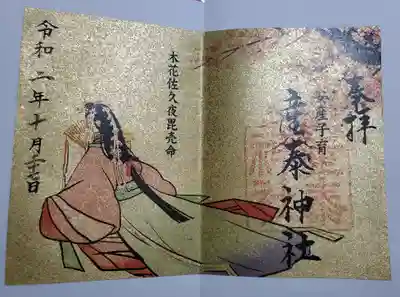 奉拝
安産子育
産泰神社
木花佐久夜毘売命
令和二年十月三十日